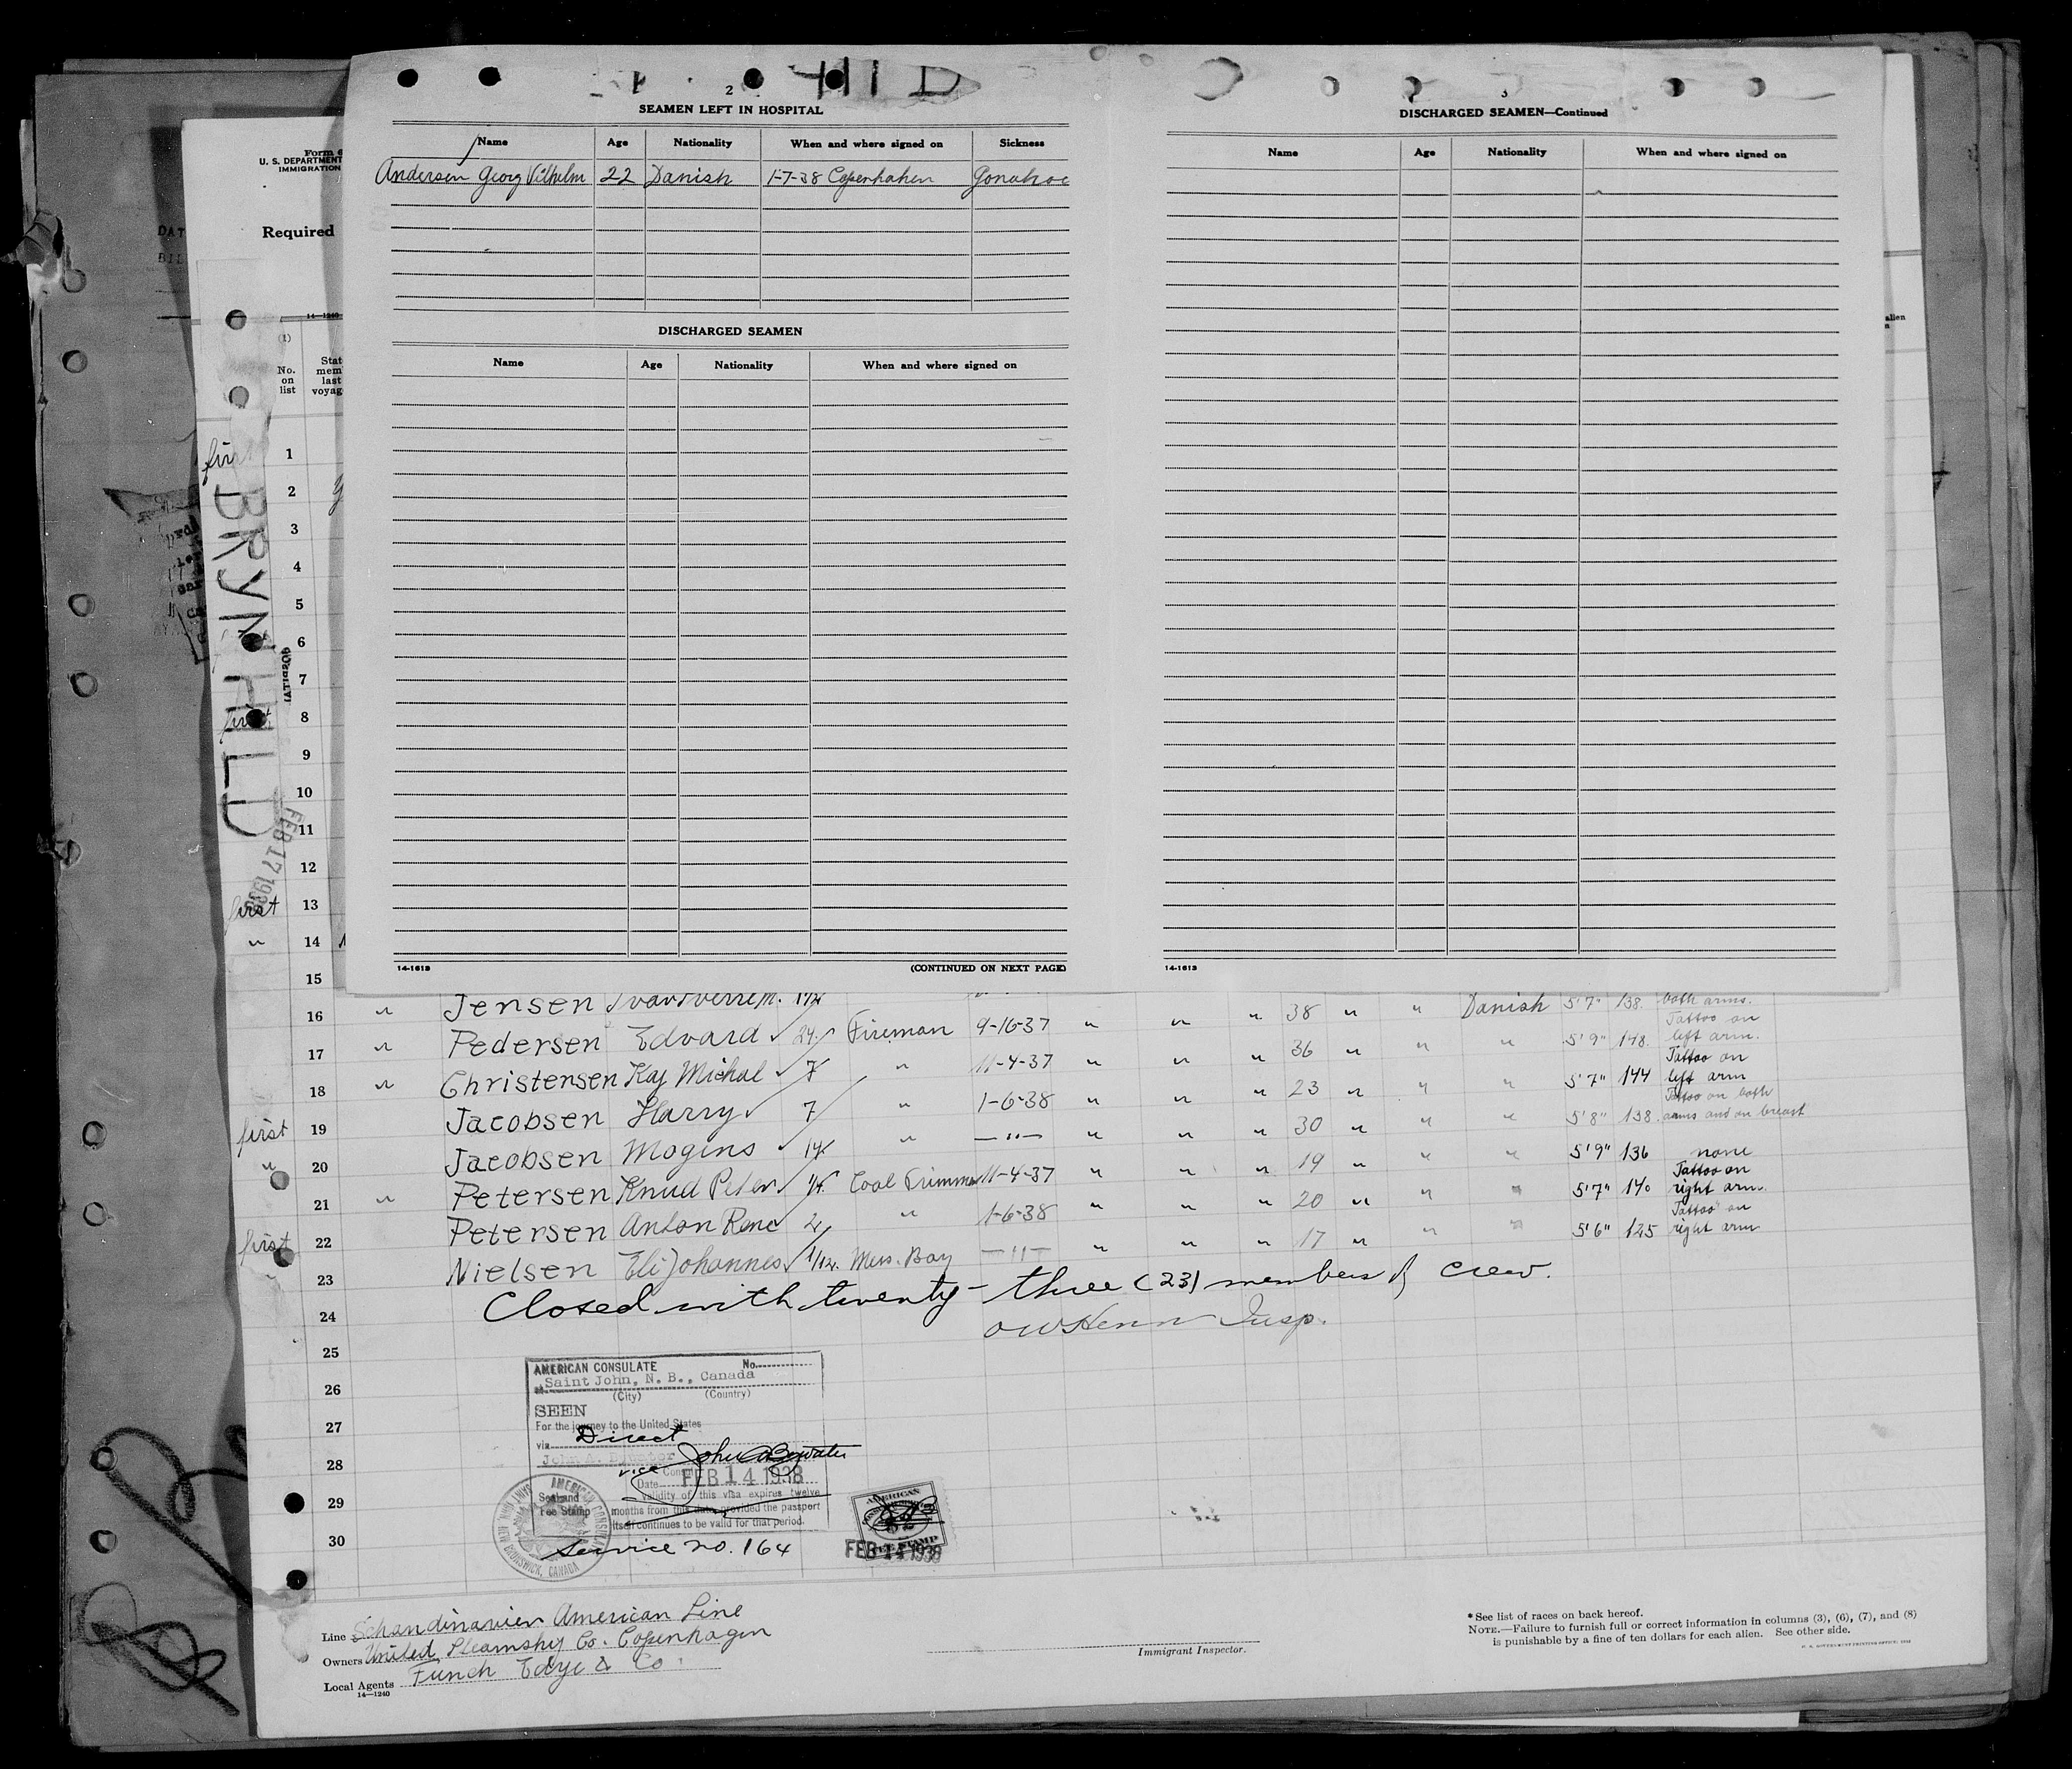 HILD
2
SEAMEN LEFT IN HOSPITAL
Name Age Nationality When and where signed on Sickness
Andersen Georg Vilhelm 22 Danish 1-7-38 Copenhaken
DISCHARGED SEAMEN
Name Age Nationality When and where signed on
14-1613 (CONTINUED ON NEXT PAGE)
3
DISCHARGED SEAMEN—Continued
Name Age Nationality When and where signed on
14-1613
U. S. DEPARTMENT
IMMIGRATION
Required
14—1240
(1)
No. on list
BRYNHILD
HOSPITAL
FEB 17 1938
1
2
3
4
5
6
7
8
9
10
11
12
first 13
" 14
15
16 " Jensen 38 " " Danish 5'7" 138 both arms.
17 " Pedersen Edvard 24 Fireman 9-16-37 " " " 36 " " " 5'9" 148 Tattoo on left arm.
18 " Christensen Kaj Michal 7 " 11-4-37 " " " 23 " " " 5'7" 144 Tattoo on left arm
first 19 Jacobsen Harry 7 " 1-6-38 " " " 30 " " " 5'8" 138 Tattoo on both arms and on breast
" 20 Jacobsen Mogens 14 " —"— " " " 19 " " " 5'9" 136 none
21 " Petersen Knud Peter Coal Trimmer 11-4-37 " " " 20 " " " 5'7" 140 Tattoo on right arm.
first 22 Petersen Anton Rene 2 " 1-6-38 " " " 17 " " " 5'6" 125 Tattoo on right arm
23 Nielsen Eli Johannes 1/12 Mess. Boy —"— " " "
Closed with twenty-three (23) members of crew.
24 Insp.
25
26
27
28
29
30
AMERICAN CONSULATE No.
at Saint John, N. B., Canada
(City) (Country)
SEEN
For the journey to the United States
via Direct
vice Consul
Date FEB 14 1938
validity of this visa expires twelve
months from this date provided the passport
itself continues to be valid for that period.
Seal and
Fee Stamp
Service no. 164
AMERICAN
FEE STAMP
FEB 14 1938
Line Schandinavien American Line
Owners United Steamship Co. Copenhagen
Local Agents Funch Edye & Co.
14—1240
Immigrant Inspector.
* See list of races on back hereof.
NOTE.—Failure to furnish full or correct information in columns (3), (6), (7), and (8)
is punishable by a fine of ten dollars for each alien. See other side.